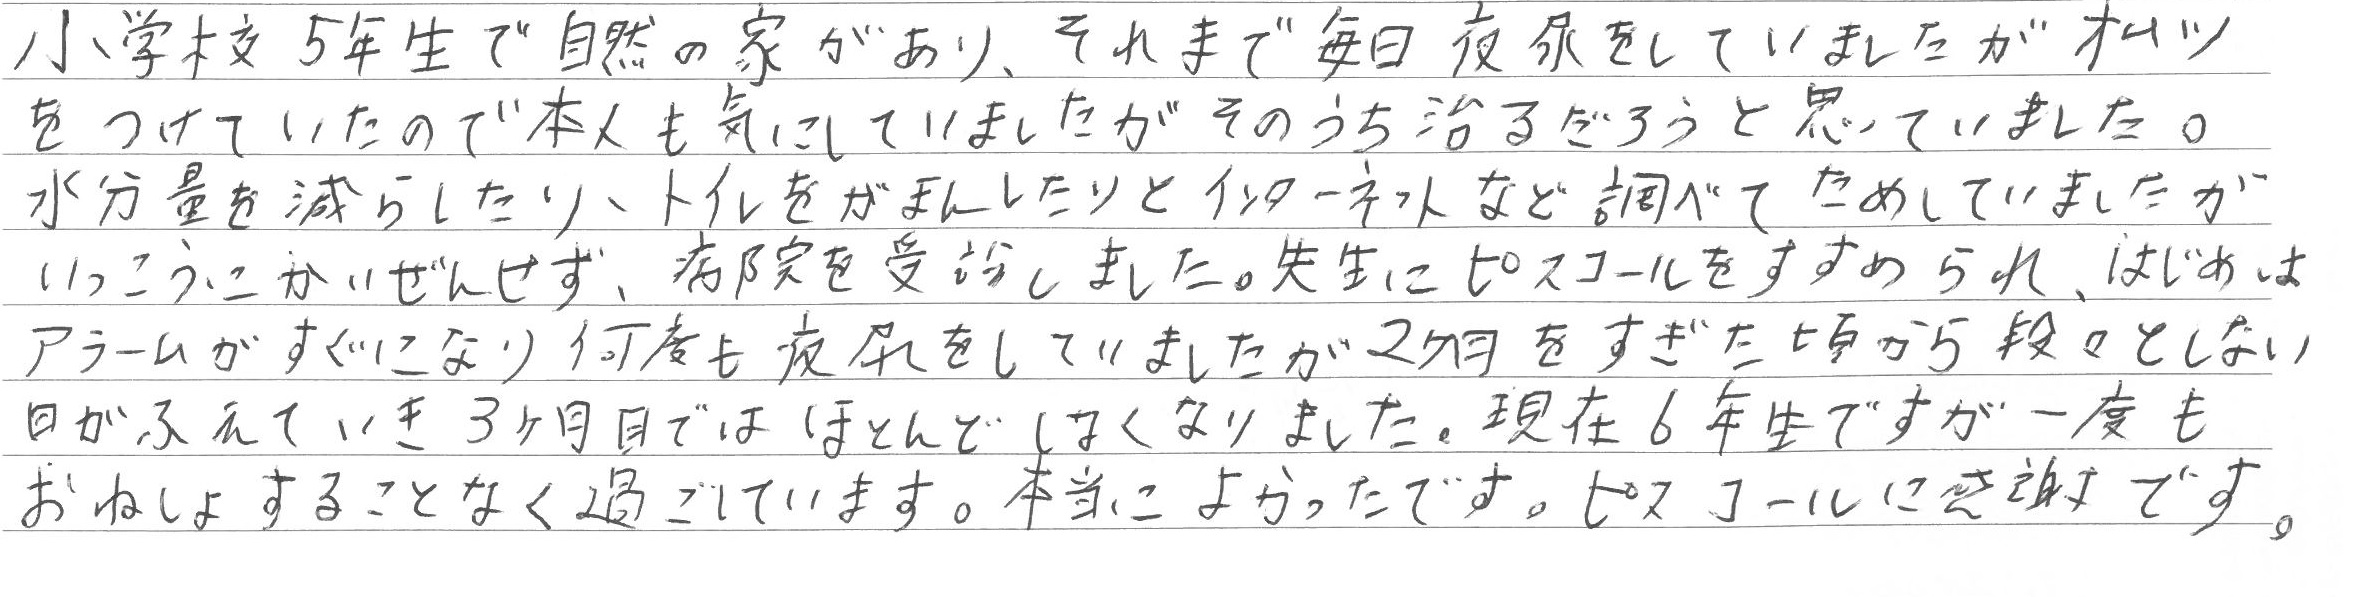 小学校5年生で自然の家があり、それまで毎日夜尿をしていましたがオムツ
をつけていたので本人も気にしていましたがそのうち治るだろうと思っていました。
水分量を減らしたり、トイレをがまんしたりとインターネットなど調べてためしていましたが
いっこうにかいぜんせず、病院を受診しました。先生にピスコールをすすめられ、はじめは
アラームがすぐになり何度も夜尿をしていましたが2ヶ月をすぎた頃から段々としない
日がふえていき3ヶ月目ではほとんどしなくなりました。現在6年生ですが一度も
おねしょすることなく過ごしています。本当によかったです。ピスコールに感謝です。